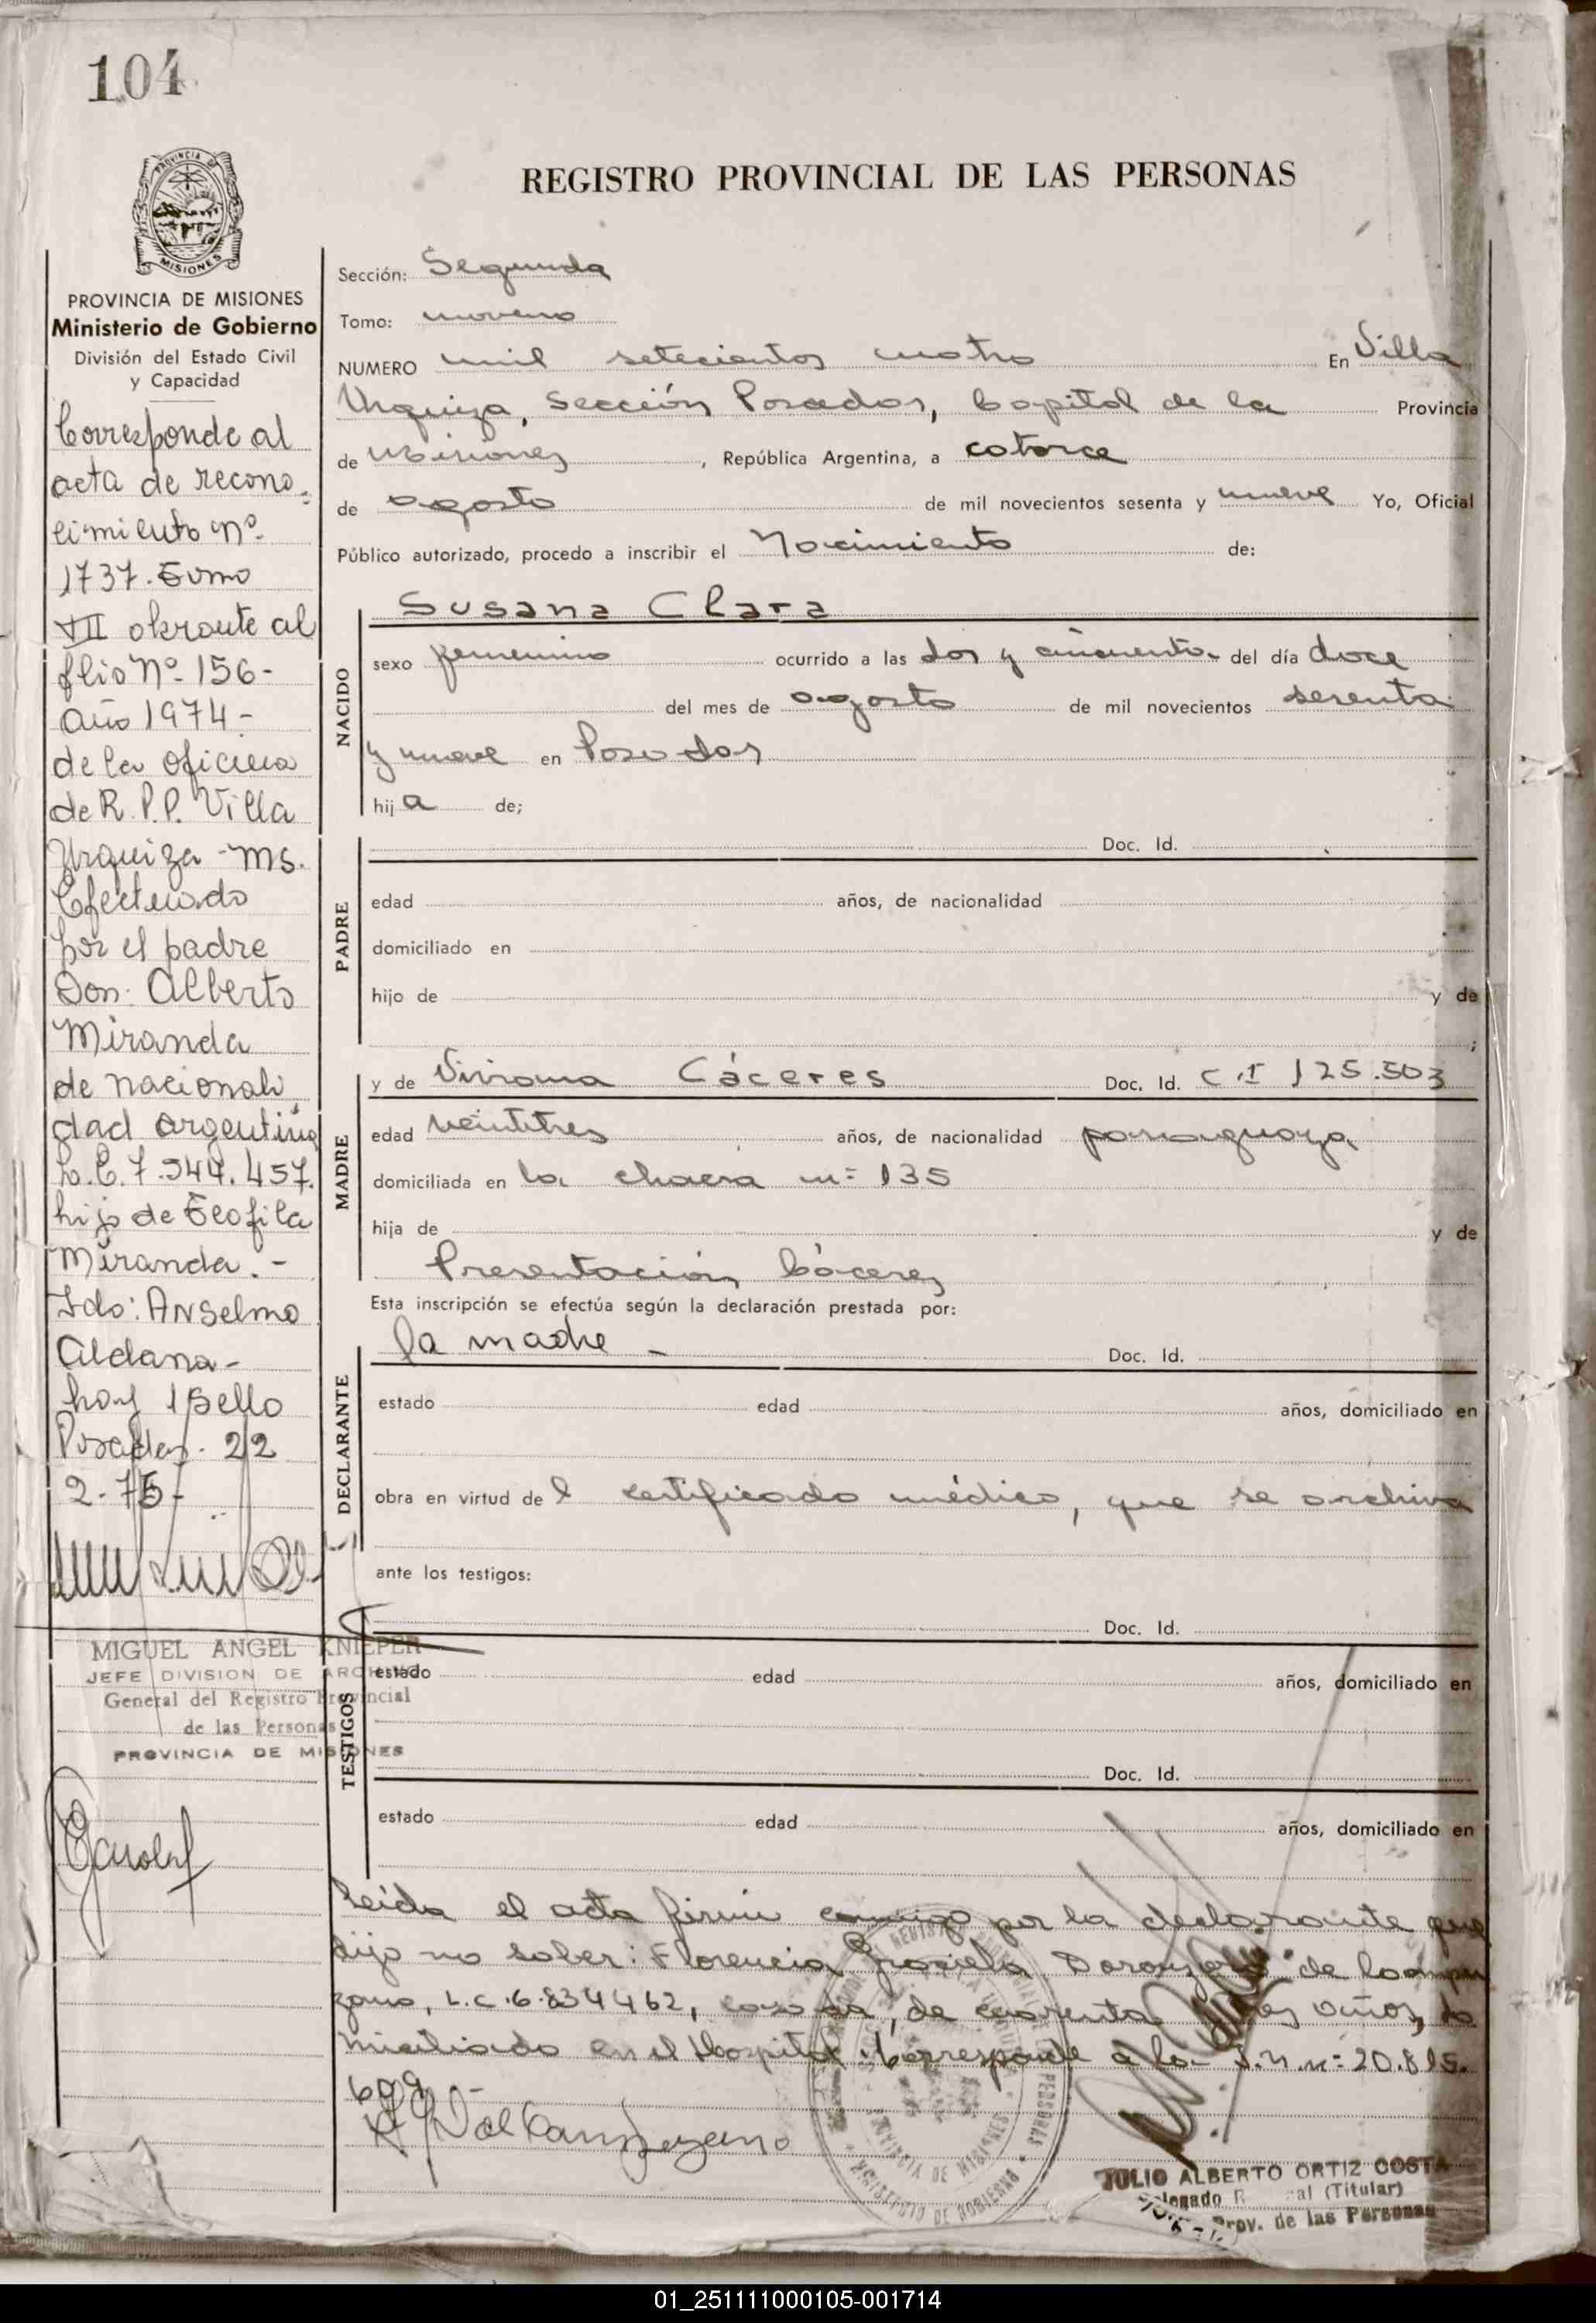 104
REGISTRO PROVINCIAL DE LAS PERSONAS
PROVINCIA DE
MISIONES
PROVINCIA DE MISIONES
Ministerio de Gobierno
División del Estado Civil
y Capacidad
Corresponde al
acta de recono=
cimiento nº
1737. Tomo
VII obrante al
flio Nº 156-
año 1974-
de la oficina
de R.P.P. Villa
Urquiza - Ms.
Efectuado
por el padre
Don: Alberto
Miranda
de nacionali
dad argentina
L.E. 7.544.457.
hijo de Teofila
Miranda. -
Fdo: Anselmo
Aldana -
hay 1 sello
Posadas. 22
2-75-
MIGUEL ANGEL KNIEPER
JEFE DIVISION DE ARCHIVO
General del Registro Provincial
de las Personas
PROVINCIA DE MISIONES
Sección: Segunda
Tomo: noveno
NUMERO mil setecientos cuatro En Villa
Urquiza, Sección Posadas, Capital de la Provincia
de Misiones, República Argentina, a catorce
de agosto de mil novecientos sesenta y nueve Yo, Oficial
Público autorizado, procedo a inscribir el Nacimiento de:
NACIDO
Susana Clara
sexo femenino ocurrido a las dos y cincuenta del día doce
del mes de agosto de mil novecientos sesenta
y nueve en Posadas
hija de;
PADRE
Doc. Id.
edad años, de nacionalidad
domiciliado en
hijo de y de
;
MADRE
y de Viviana Cáceres Doc. Id. C.I 125.503
edad veintitres años, de nacionalidad paraguaya
domiciliada en la chacra nº 135
hija de y de
Presentación Cáceres
Esta inscripción se efectúa según la declaración prestada por:
DECLARANTE
la madre - Doc. Id.
estado edad años, domiciliado en
obra en virtud del certificado médico, que se archiva
ante los testigos:
TESTIGOS
Doc. Id.
estado edad años, domiciliado en
Doc. Id.
estado edad años, domiciliado en
Leida el acta firma conmigo por la declarante que
dijo no saber: Florencia Graciela de
L.C. 6.834462, casada, de cuarenta años, do
miciliada en el Hospital. Corresponde a la nº 20.815.
609 -
JULIO ALBERTO ORTIZ COSTA
(Titular)
Prov. de las Personas
01_251111000105-001714